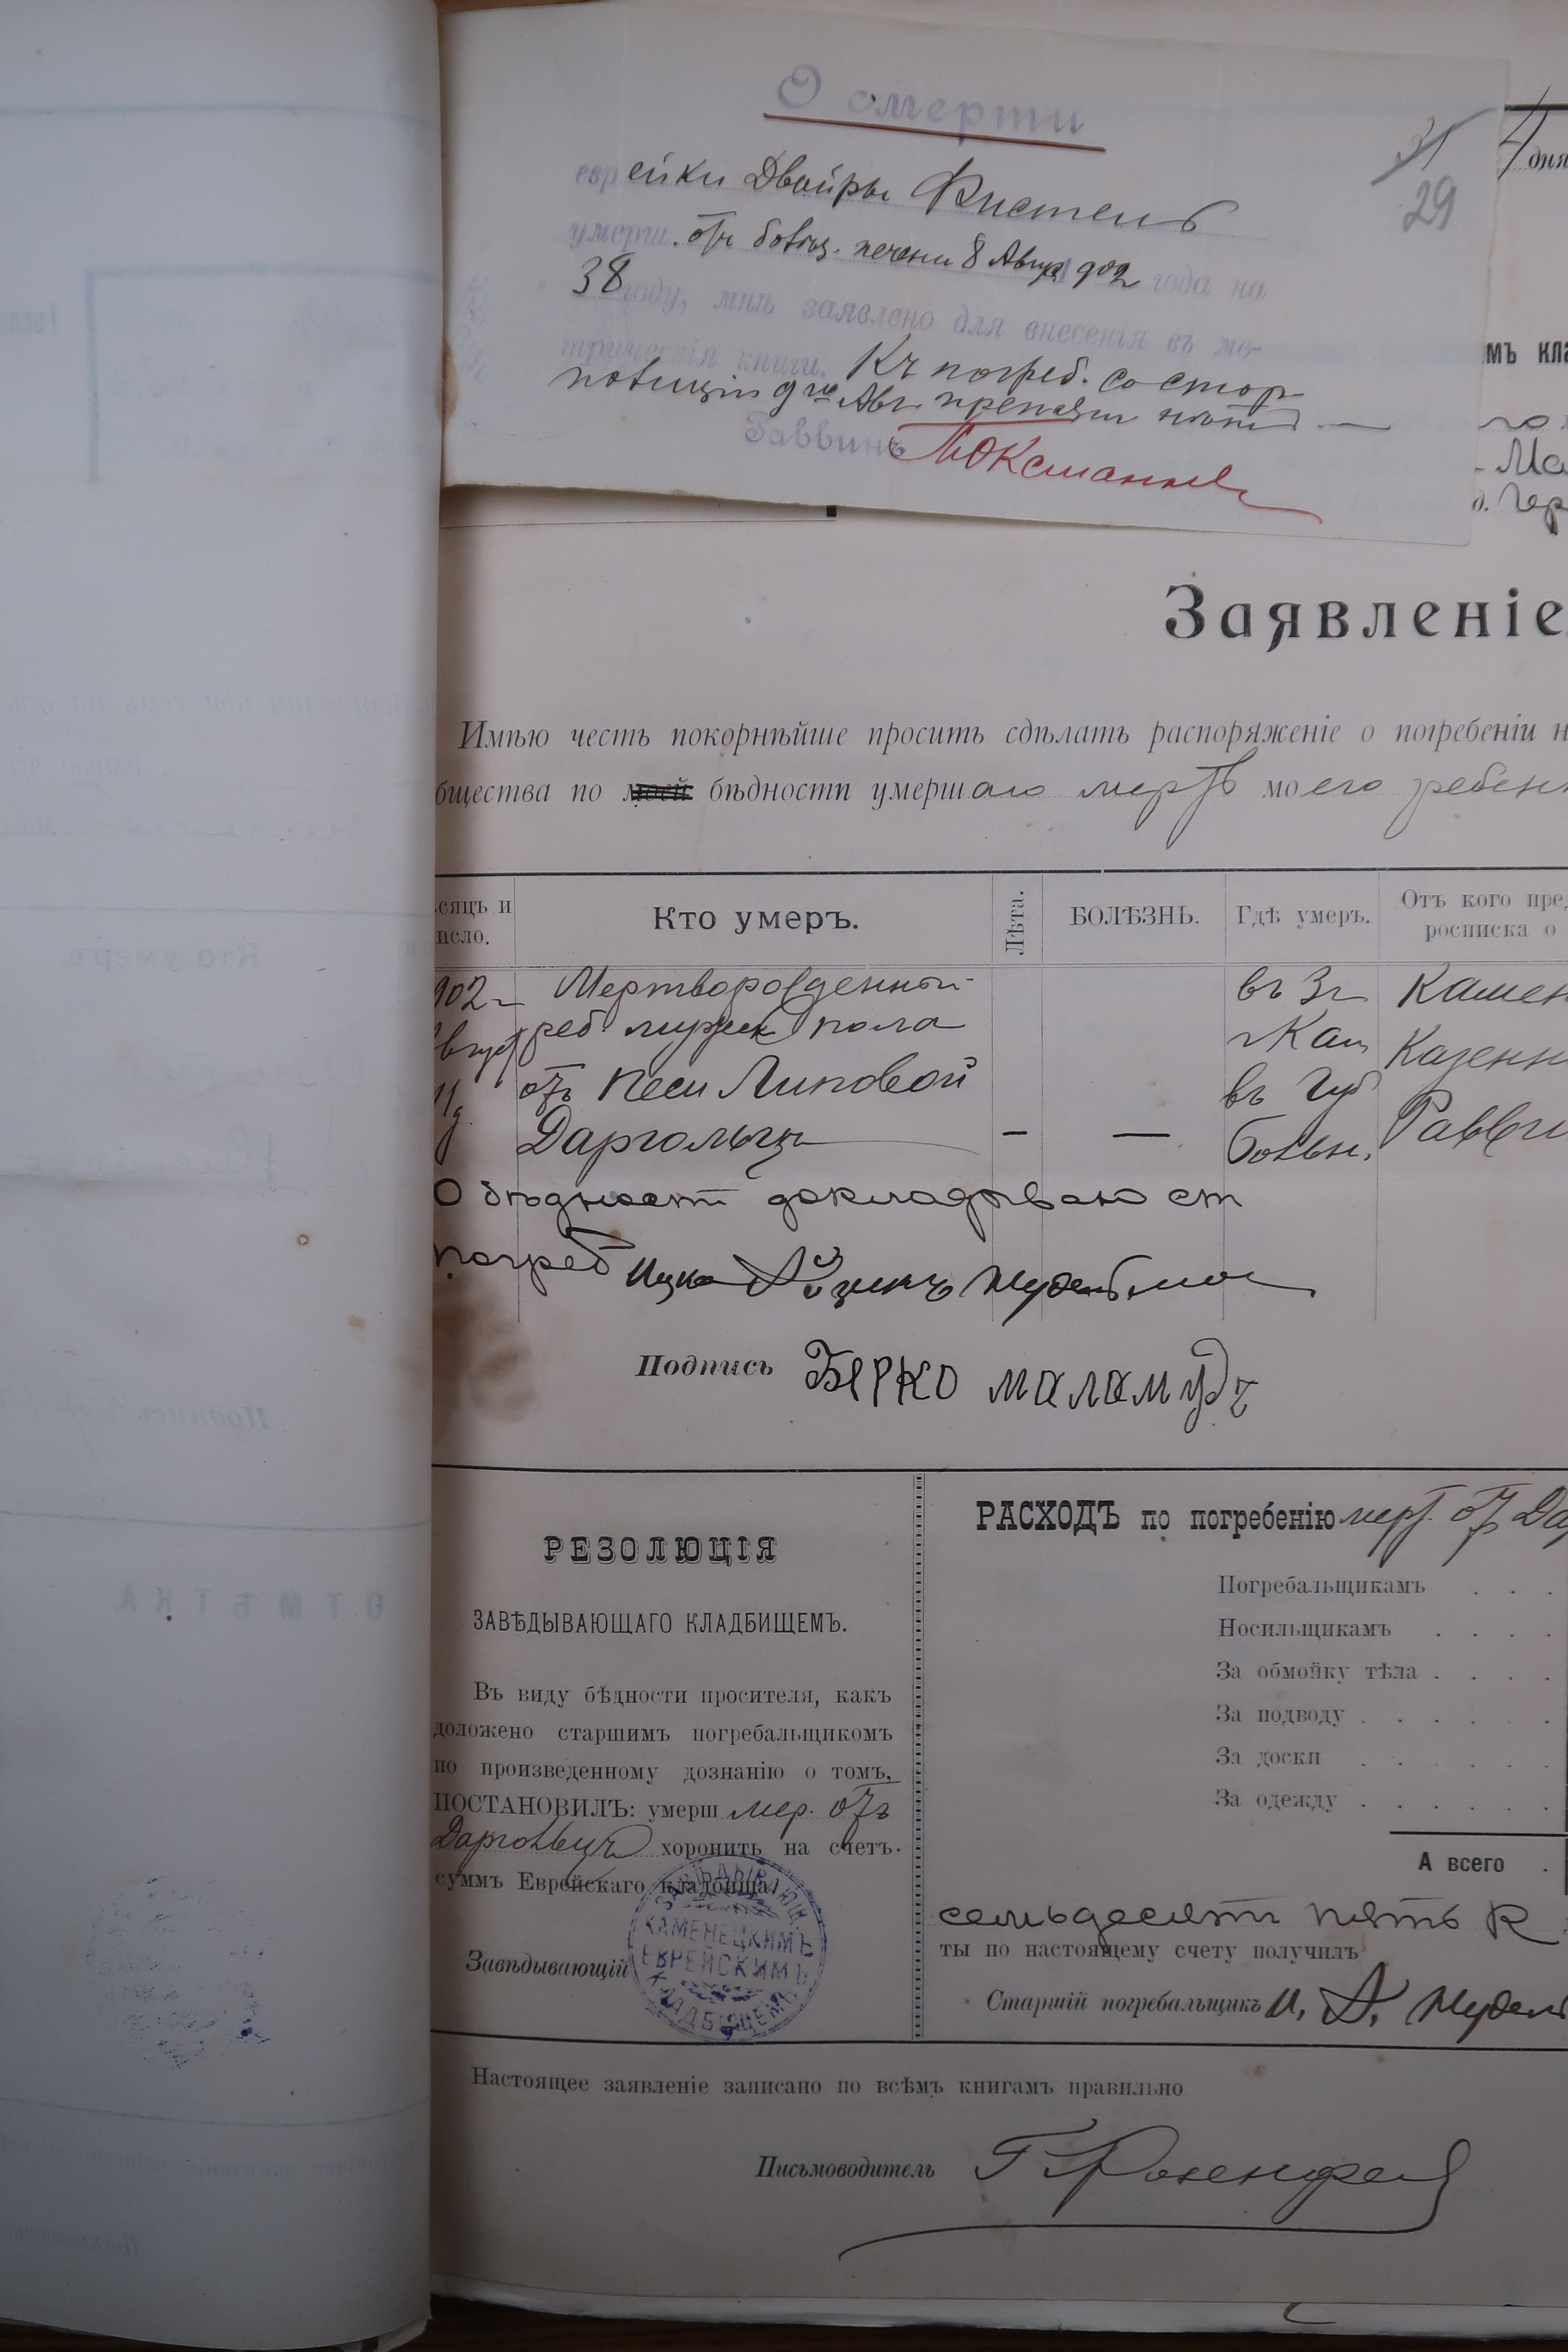 О смерти
еврейки Двойры Кистенъ
умерш. отъ болѣз. печени 8 Авгус 902 года на
38 году, мнѣ заявлено для внесенія въ ме-
трическія книги. Къ погреб. со стор.
полиціи 9го Авг. препят нѣтъ
Раввинъ
31
29
4 дня
мъ кла
го
Ма
Заявленіе
Имѣю честь покорнѣйше просить сдѣлать распоряженіе о погребеніи н
бщества по моей бѣдности умершаго мертв моего ребенк
сяцъ и
исло.
Кто умеръ.
Лѣта.
БОЛѢЗНЬ.
Гдѣ умеръ.
Отъ кого пред
росписка о
902 г
Мертворожденный
въ
Камен
реб. мужск пола
г Кам
Казенн
отъ Песи Липовой
въ Губ
Равви
Даргольцъ
— —
больн.
О бѣдности докладываю ст
погреб Ицко Айзикъ Нудельман
Подпись Берко маламудъ
РЕЗОЛЮЦІЯ
ЗАВѢДЫВАЮЩАГО КЛАДБИЩЕМЪ.
Въ виду бѣдности просителя, какъ
доложено старшимъ погребальщикомъ
по произведенному дознанію о томъ,
ПОСТАНОВИЛЪ: умерш мер. отъ
Даргольцъ хоронить на счетъ
суммъ Еврейскаго кладбища.
Завѣдывающій
ЗАВѢДЫВАЮЩ.
КАМЕНЕЦКИМЪ
ЕВРЕЙСКИМЪ
КЛАДБИЩЕМЪ
РАСХОДЪ по погребенію мерт. отъ Да
Погребальщикамъ . . .
Носильщикамъ . . . .
За обмойку тѣла . . . .
За подводу . . . . .
За доски . . . . .
За одежду . . . . . .
А всего .
семьдесятъ пять К
ты по настоящему счету получилъ
Старшій погребальщикъ И. А. Нудель
Настоящее заявленіе записано по всѣмъ книгамъ правильно
Письмоводитель Г Розенфел